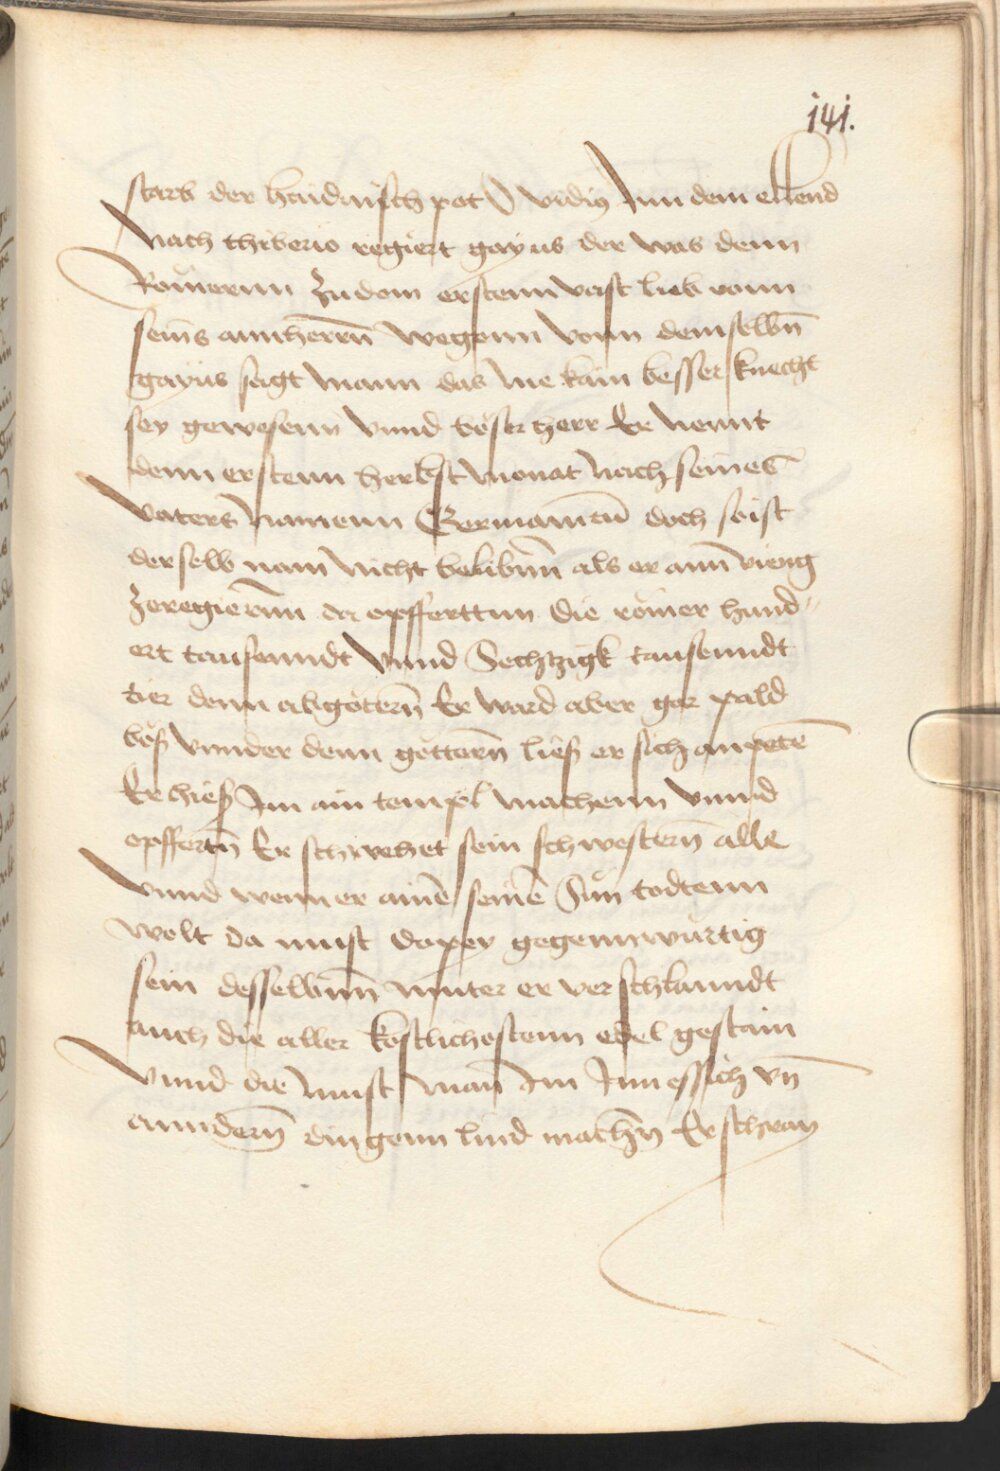 141.
starb der haidnisch poet Ovidiy Inn dem ellend
Nach thiberio regiert gayus der was denn
Römernn Zudem erstenn vast lieb vonn
seins annherrn̄ wegenn Vonn demselbn̄
gayus sagt Mann das nie kain besser knecht
sey gewesenn Vnnd böser herr Er Nennt
denn erstenn herbst monat Nach seines
Vaters Namenn Germanicū doch so ist
derselb nam Nicht belibnn̄ als er ann vieng
Zeregiernn̄ da opfferttnn die römer hund-
ert tausenndt Vnnd Sechtzigk tausenndt
tier denn abgötern̄ Er ward aber gar pald
böß Vnnder denn göttern̄ ließ er sich anpetn̄
Er hieß Im ain tempel Machenn Vnnd
opffertn̄ Er schwehet sein schwestern̄ alle
Vnnd wenn er ainē seinē Sun todtenn
wolt da must dapey gegennwürtig
sein desselbnn̄ Muter er verschlanndt
auch die aller köstlichostenn edel gestain
Vnnd die Must Man Im Inn essich vn̄
anndern̄ dingenn lind machn̄ Er